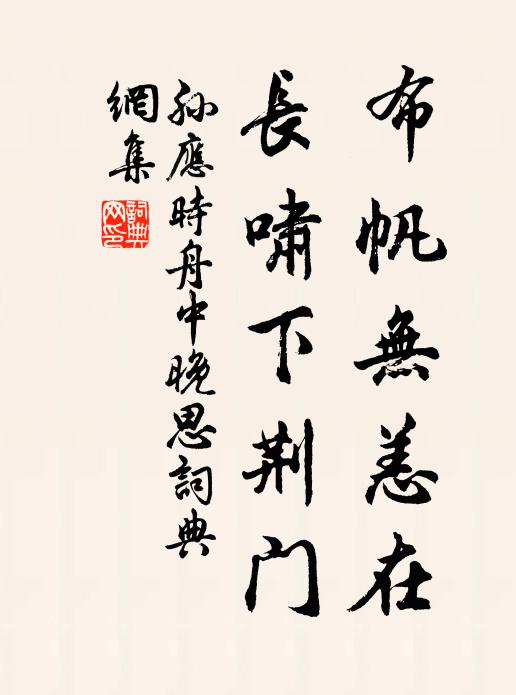 布帆無恙在
長嘯下荆门
孙應時舟中晚思詞典
網集
詞典网印